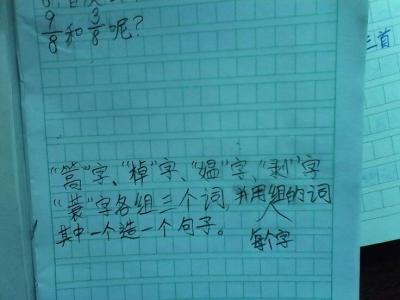 9/8和3/8呢？
三首
"蒿"字、"棹"字、"媪"字、"剥"字
"蓑"字各组三个词,并用组的词
其中一个造一个句子。
每个字